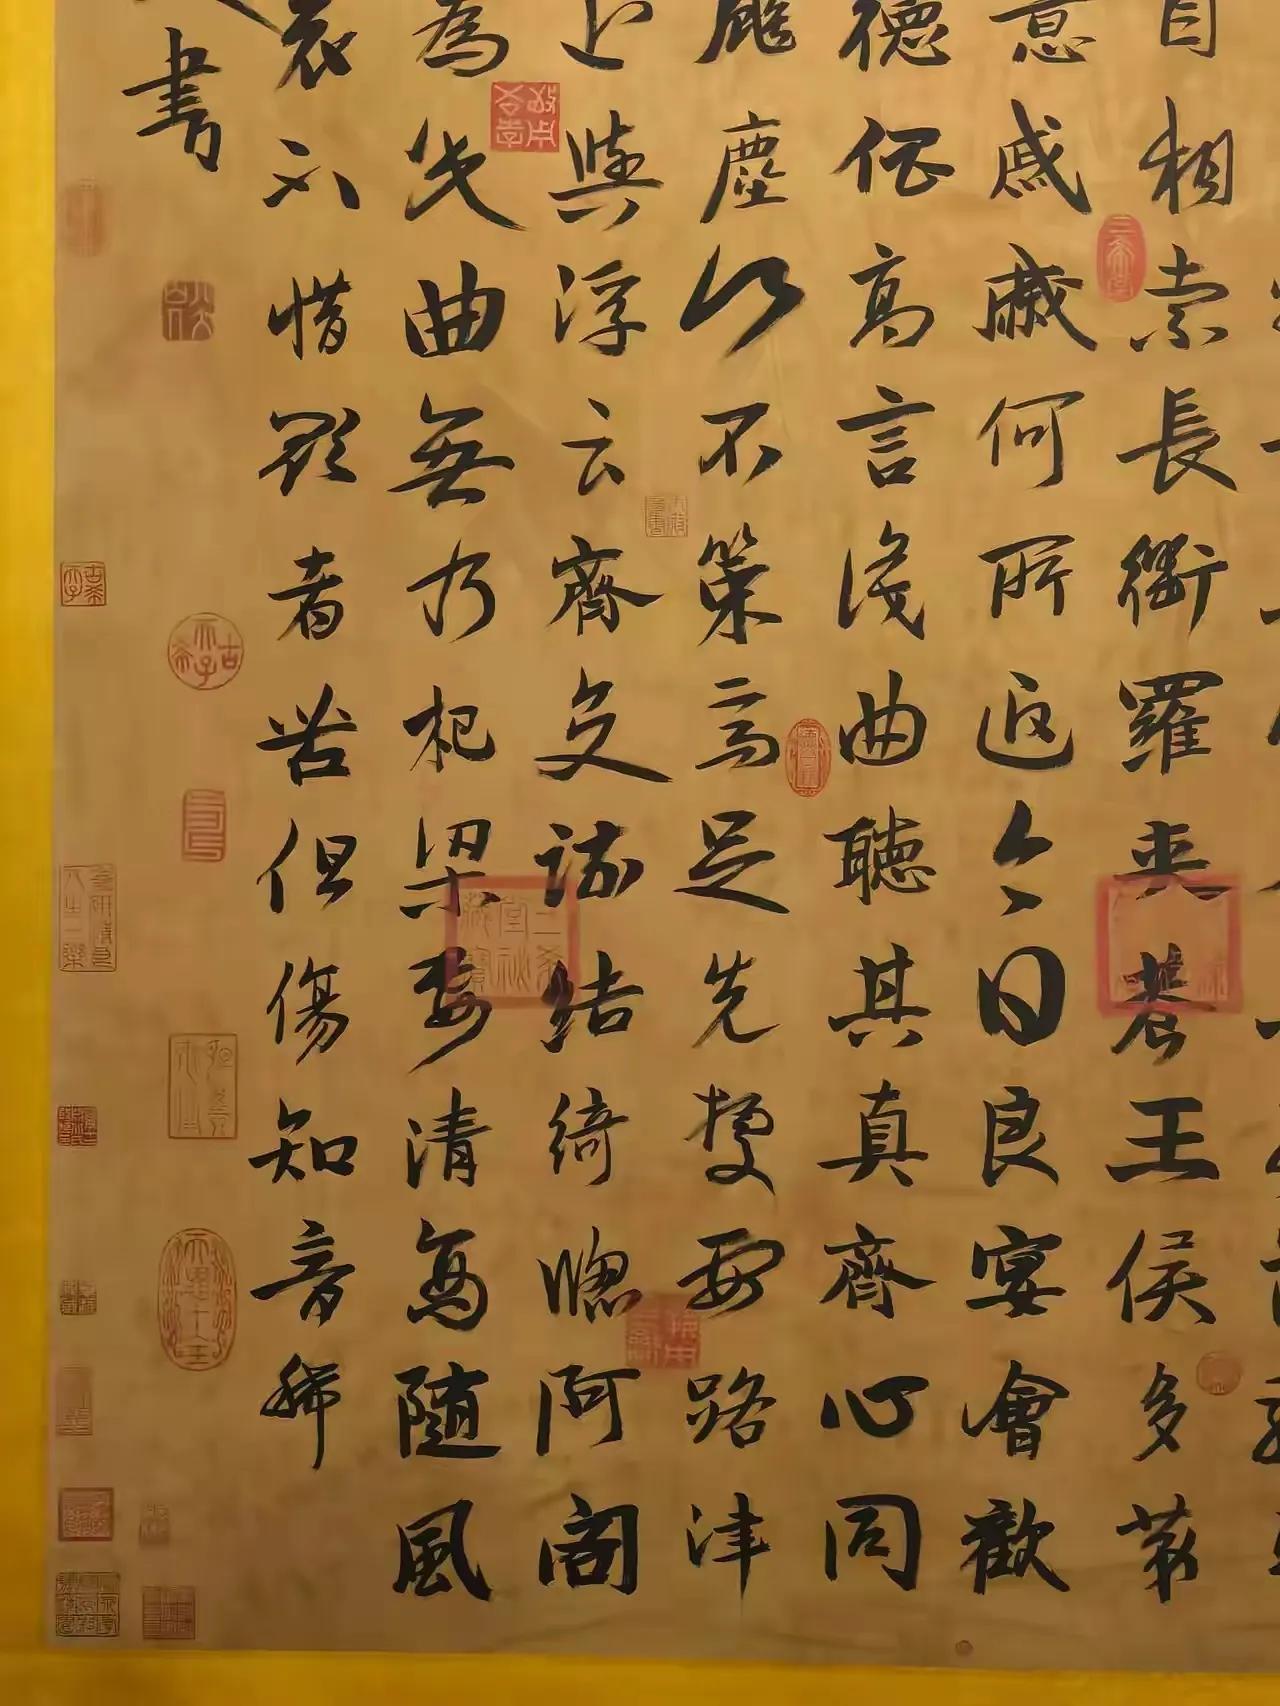 自相索長衢羅夾巷王侯多第
意戚戚何所迫今日良宴會歡
德倡高言識曲聽其真齊心同
飈塵何不策高足先據要路津
上與浮云齊交疏結綺牕阿閣
為此曲無乃杞梁妻清商隨風
哀不惜歌者苦但傷知音稀
書